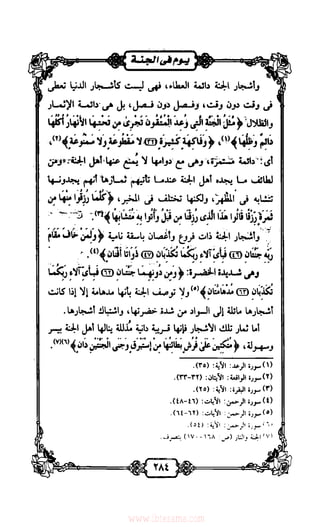 يوم في الجنة
وأشجار الجنة دائمة العطاء، فهي ليست كأشجار الدنيا تعطي
في وقت دون وقت، وفصل دون فصل، بل هي دائمة الإثمار
والظلال ﴿ مَّثَلُ الْجَنَّةِ الَّتِي وُعِدَ الْمُتَّقُونَ تَجْرِي مِن تَحْتِهَا الأَنْهَارُ أُكُلُهَا
دَائِمٌ وَظِلُّهَا ﴾(١)، ﴿ وَفَاكِهَةٍ كَثِيرَةٍ (٣٢) لاَ مَقْطُوعَةٍ وَلاَ مَمْنُوعَةٍ ﴾(٢)،
أي: دائمة مستمرة، وهي مع دوامها لا يمنع عنها أهل الجنة، ومن
لطائف ما يجده أهل الجنة عندما تأتيهم ثمارها أنهم يجدونها
تتشابه في المظهر، ولكنها تختلف في المخبر، ﴿ كُلَّمَا رُزِقُوا مِنْهَا مِن
ثَمَرَةٍ رِّزْقًا قَالُوا هَذَا الَّذِي رُزِقْنَا مِن قَبْلُ وَأُتُوا بِهِ مُتَشَابِهًا ﴾(٣).
وأشجار الجنة ذات فروع وأغصان باسقة نامية ﴿ وَلِمَنْ خَافَ مَقَامَ
رَبِّهِ جَنَّتَانِ (٤٦) فَبِأَيِّ آلاءِ رَبِّكُمَا تُكَذِّبَانِ (٤٧) ذَوَاتَا أَفْنَانٍ ﴾(٤).
وهي شديدة الخضرة: ﴿ وَمِن دُونِهِمَا جَنَّتَانِ (٦٢) فَبِأَيِّ آلاءِ رَبِّكُمَا
تُكَذِّبَانِ (٦٣) مُدْهَامَّتَانِ ﴾(٥) ولا توصف الجنة بأنها مدهامة إلا إذا كانت
أشجارها مائلة إلى السواد من شدة خضرتها، واشتباك أشجارها.
أما ثمار تلك الأشجار فإنها قريبة دانية مذللة ينالها أهل الجنة بيسر
وسهولة، ﴿ مُتَّكِئِينَ عَلَى فُرُشٍ بَطَائِنُهَا مِنْ إِسْتَبْرَقٍ وَجَنَى الْجَنَّتَيْنِ دَانٍ ﴾(٦)(٧).
(١) سورة الرعد: الآية: (٣٥).
(٢) سورة الواقعة: الآيتان: (٣٢-٣٣).
(٣) سورة البقرة: الآية: (٢٥).
(٤) سورة الرحمن: الآيات: (٤٦-٤٨).
(٥) سورة الرحمن: الآيات: (٦٢-٦٤).
(٦) سورة الرحمن: الآية: (٥٤).
(٧) الجنة والنار (ص ١٦٨-١٧٠) بتصرف.
٢٨٤